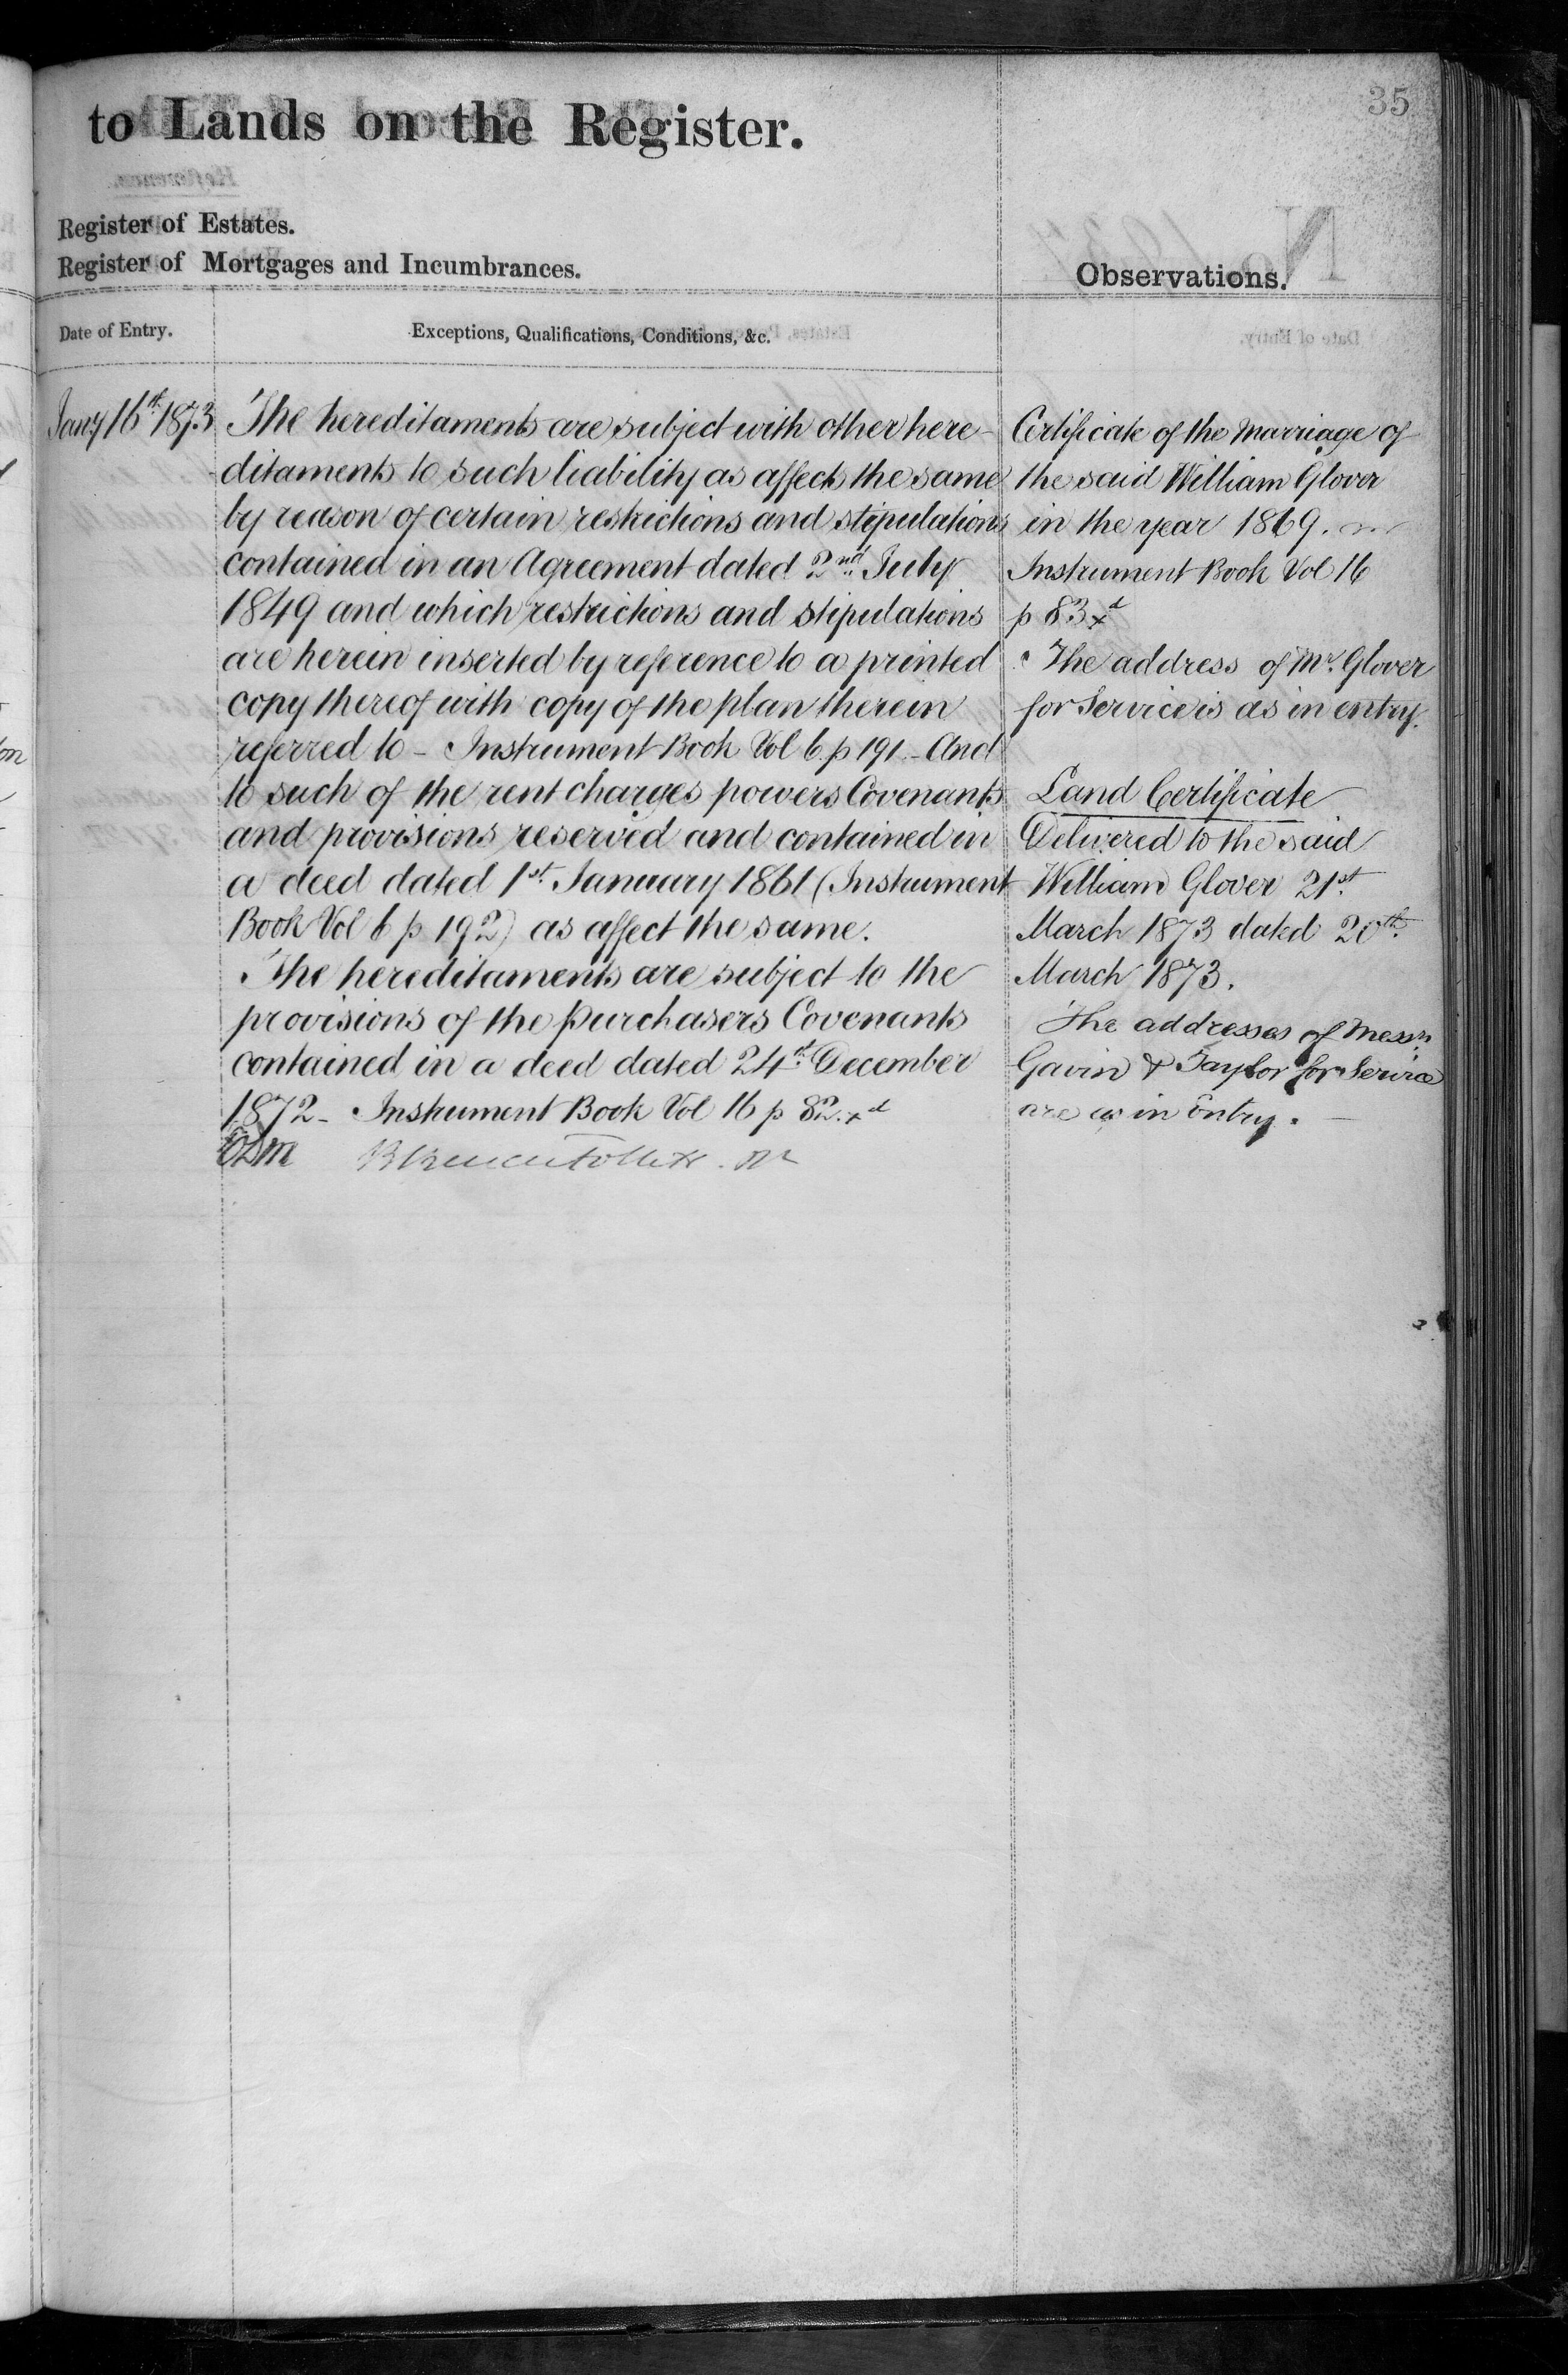 35
to Lands on the Register.
Register of Estates.
Register of Mortgages and Incumbrances.
Observations.
Date of Entry.
Exceptions, Qualifications, Conditions, &c.
Jany 16th 1873
The hereditaments are subject with other here-
ditaments to such liability as affects the same
by reason of certain restrictions and stipulations
contained in an Agreement dated 2nd July
1849 and which restrictions and stipulations
are herein inserted by reference to a printed
copy thereof with copy of the plan therein
referred to - Instrument Book Vol 6 p 191 - And
to such of the rent charges powers Covenants
and provisions reserved and contained in
a deed dated 1st January 1861 (Instrument
Book Vol 6 p 192) as affect the same.
The hereditaments are subject to the
provisions of the purchasers Covenants
contained in a deed dated 24th December
1872 - Instrument Book Vol 16 p 82
Certificate of the Marriage of
the said William Glover
in the year 1869.
Instrument Book Vol 16
p 83
The address of Mr. Glover
for Service is as in entry.
Land Certificate
Delivered to the said
William Glover 21st
March 1873 dated 20th
March 1873.
The addresses of Messrs
Gavin & Taylor for Service
are as in Entry. -